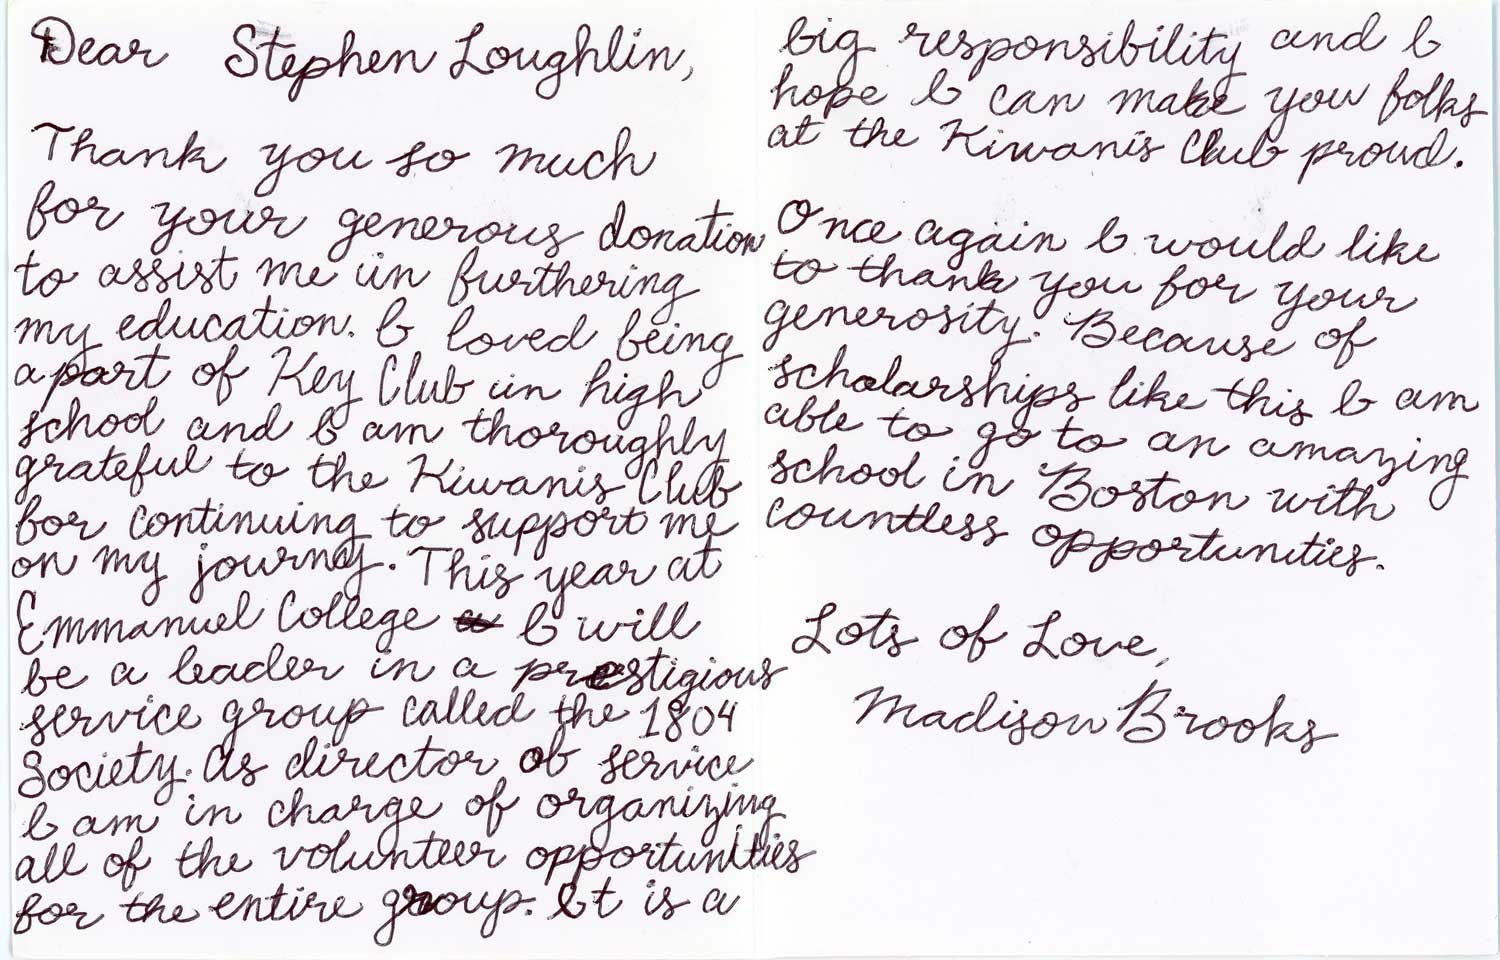 Dear Stephen Loughlin,
Thank you so much
for your generous donation
to assist me in furthering
my education. I loved being
a part of Key Club in high
school and I am thoroughly
grateful to the Kiwanis Club
for continuing to support me
on my journey. This year at
Emmanuel College I will
be a leader in a prestigious
service group called the 1804
Society. As director of service
I am in charge of organizing
all of the volunteer opportunities
for the entire group. It is a
big responsibility and I
hope I can make you folks
at the Kiwanis Club proud.
Once again I would like
to thank you for your
generosity. Because of
scholarships like this I am
able to go to an amazing
school in Boston with
countless opportunities.
Lots of Love,
Madison Brooks